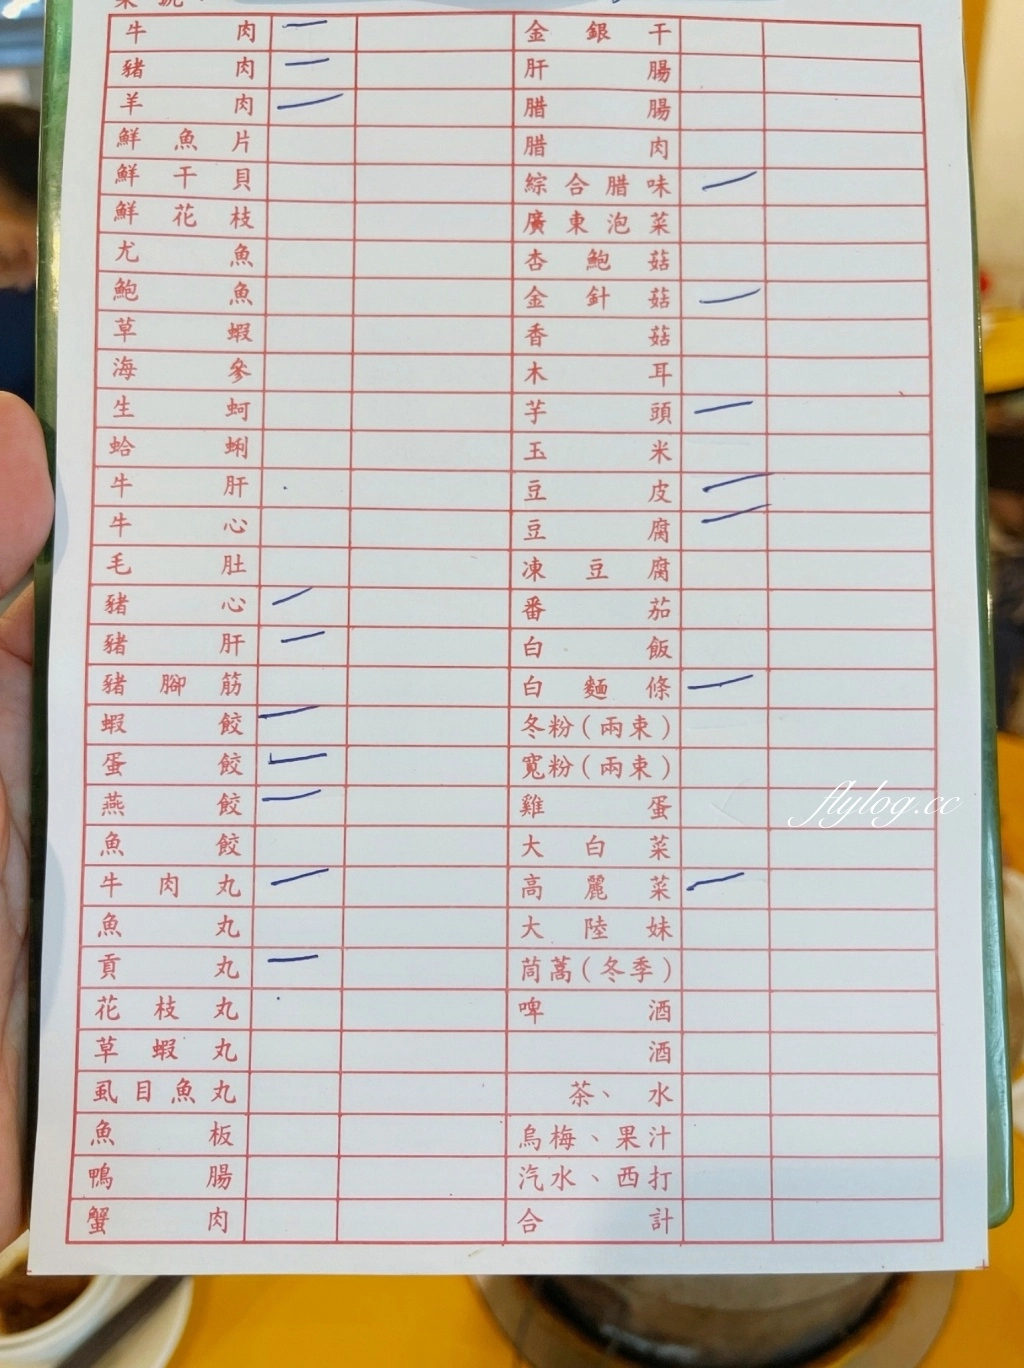 牛肉 一
豬肉 一
羊肉 一
鮮魚片
鮮干貝
鮮花枝
尤魚
鮑魚
草蝦
海參
生蚵
蛤蜊
牛肝
牛心
毛肚
豬心 一
豬肝 一
豬腳筋
蝦餃 一
蛋餃 一
燕餃 一
魚餃
牛肉丸 一
魚丸
貢丸 一
花枝丸
草蝦丸
虱目魚丸
魚板
鴨腸
蟹肉
金銀干
肝腸
腊腸
腊肉
綜合腊味 一
廣東泡菜
杏鮑菇
金針菇 一
香菇
木耳
芋頭 一
玉米
豆皮 一
豆腐 一
凍豆腐
番茄
白飯
白麵條 一
冬粉(兩束)
寬粉(兩束)
雞蛋
大白菜
高麗菜 一
大陸妹
茼蒿(冬季)
啤酒
酒
茶、水
烏梅、果汁
汽水、西打
合計
flylog.cc